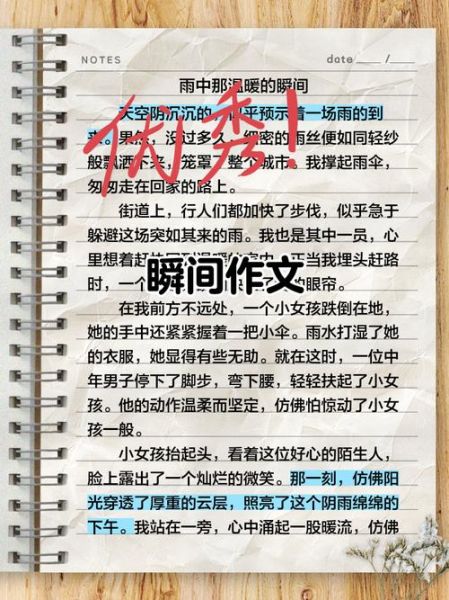 NOTES
date ____ / ____
雨中那温暖的瞬间
天空阴沉沉的，似乎预示着一场雨的到
来。果然，没过多久，细密的雨丝便如同轻纱
般飘洒下来，笼罩了整个城市。我撑起雨伞，
匆匆走在回家的路上。
优秀！
街道上，行人们都加快了步伐，似乎急于
躲避这场突如其来的雨。我也是其中一员，心
里想着赶
正当我埋头赶路
时，一个
的眼帘。
瞬间作文
在我前方不远处，一个小女孩跌倒在地，
她的手中还紧紧握着一把小伞。雨水打湿了她
的衣服，她显得有些无助。就在这时，一位中
年男子停下了脚步，弯下腰，轻轻扶起了小女
孩。他的动作温柔而坚定，仿佛怕惊动了小女
孩一般。
小女孩抬起头，看着这位好心的陌生人，
脸上露出了一个灿烂的微笑。那一刻，仿佛阳
光穿透了厚重的云层，照亮了这个阴雨绵绵的
下午。我站在一旁，心中涌起一股暖流，仿佛